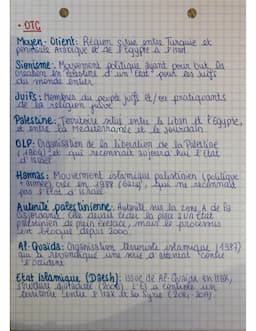 • OTC
Moyen-Orient: Région située entre Turquie et
péninsule Arabique et de l'Egypte à l'Iran
Sionisme: Mouvement politique ayant pour but la
création en Palestine d'un "Etat" pour les juifs
du monde entier.
Juifs: Membres du peuple juif et/ou pratiquants
de la religion juive
Palestine: Territoire situé entre le Liban et l'Egypte,
et entre la Méditerranée et le Jourdain
OLP: Organisation de la libération de la Palestine
(1964) et qui reconnait aujourd'hui l'Etat
d'Israël
Hamas: Mouvement islamique palestinien (politique
+ armée) créé en 1988 qui ne reconnait
pas l'Etat d'Israël.
Autorité palestinienne: Autorité sur la zone A de la
Cisjordanie. Elle devait céder la place à un Etat
palestinien de plein exercice, mais le processus
est bloqué depuis 2000.
Al-Quaïda: Organisation terroriste islamique (1987)
qui a revendiqué une série d'attentat contre
l'occident
Etat Islamique (Daesh): issue de Al-Quaïda en Irak,
structure djihadiste (2006). L'EI a contrôlé un
territoire entre l'Irak et la Syrie (2014-2019).